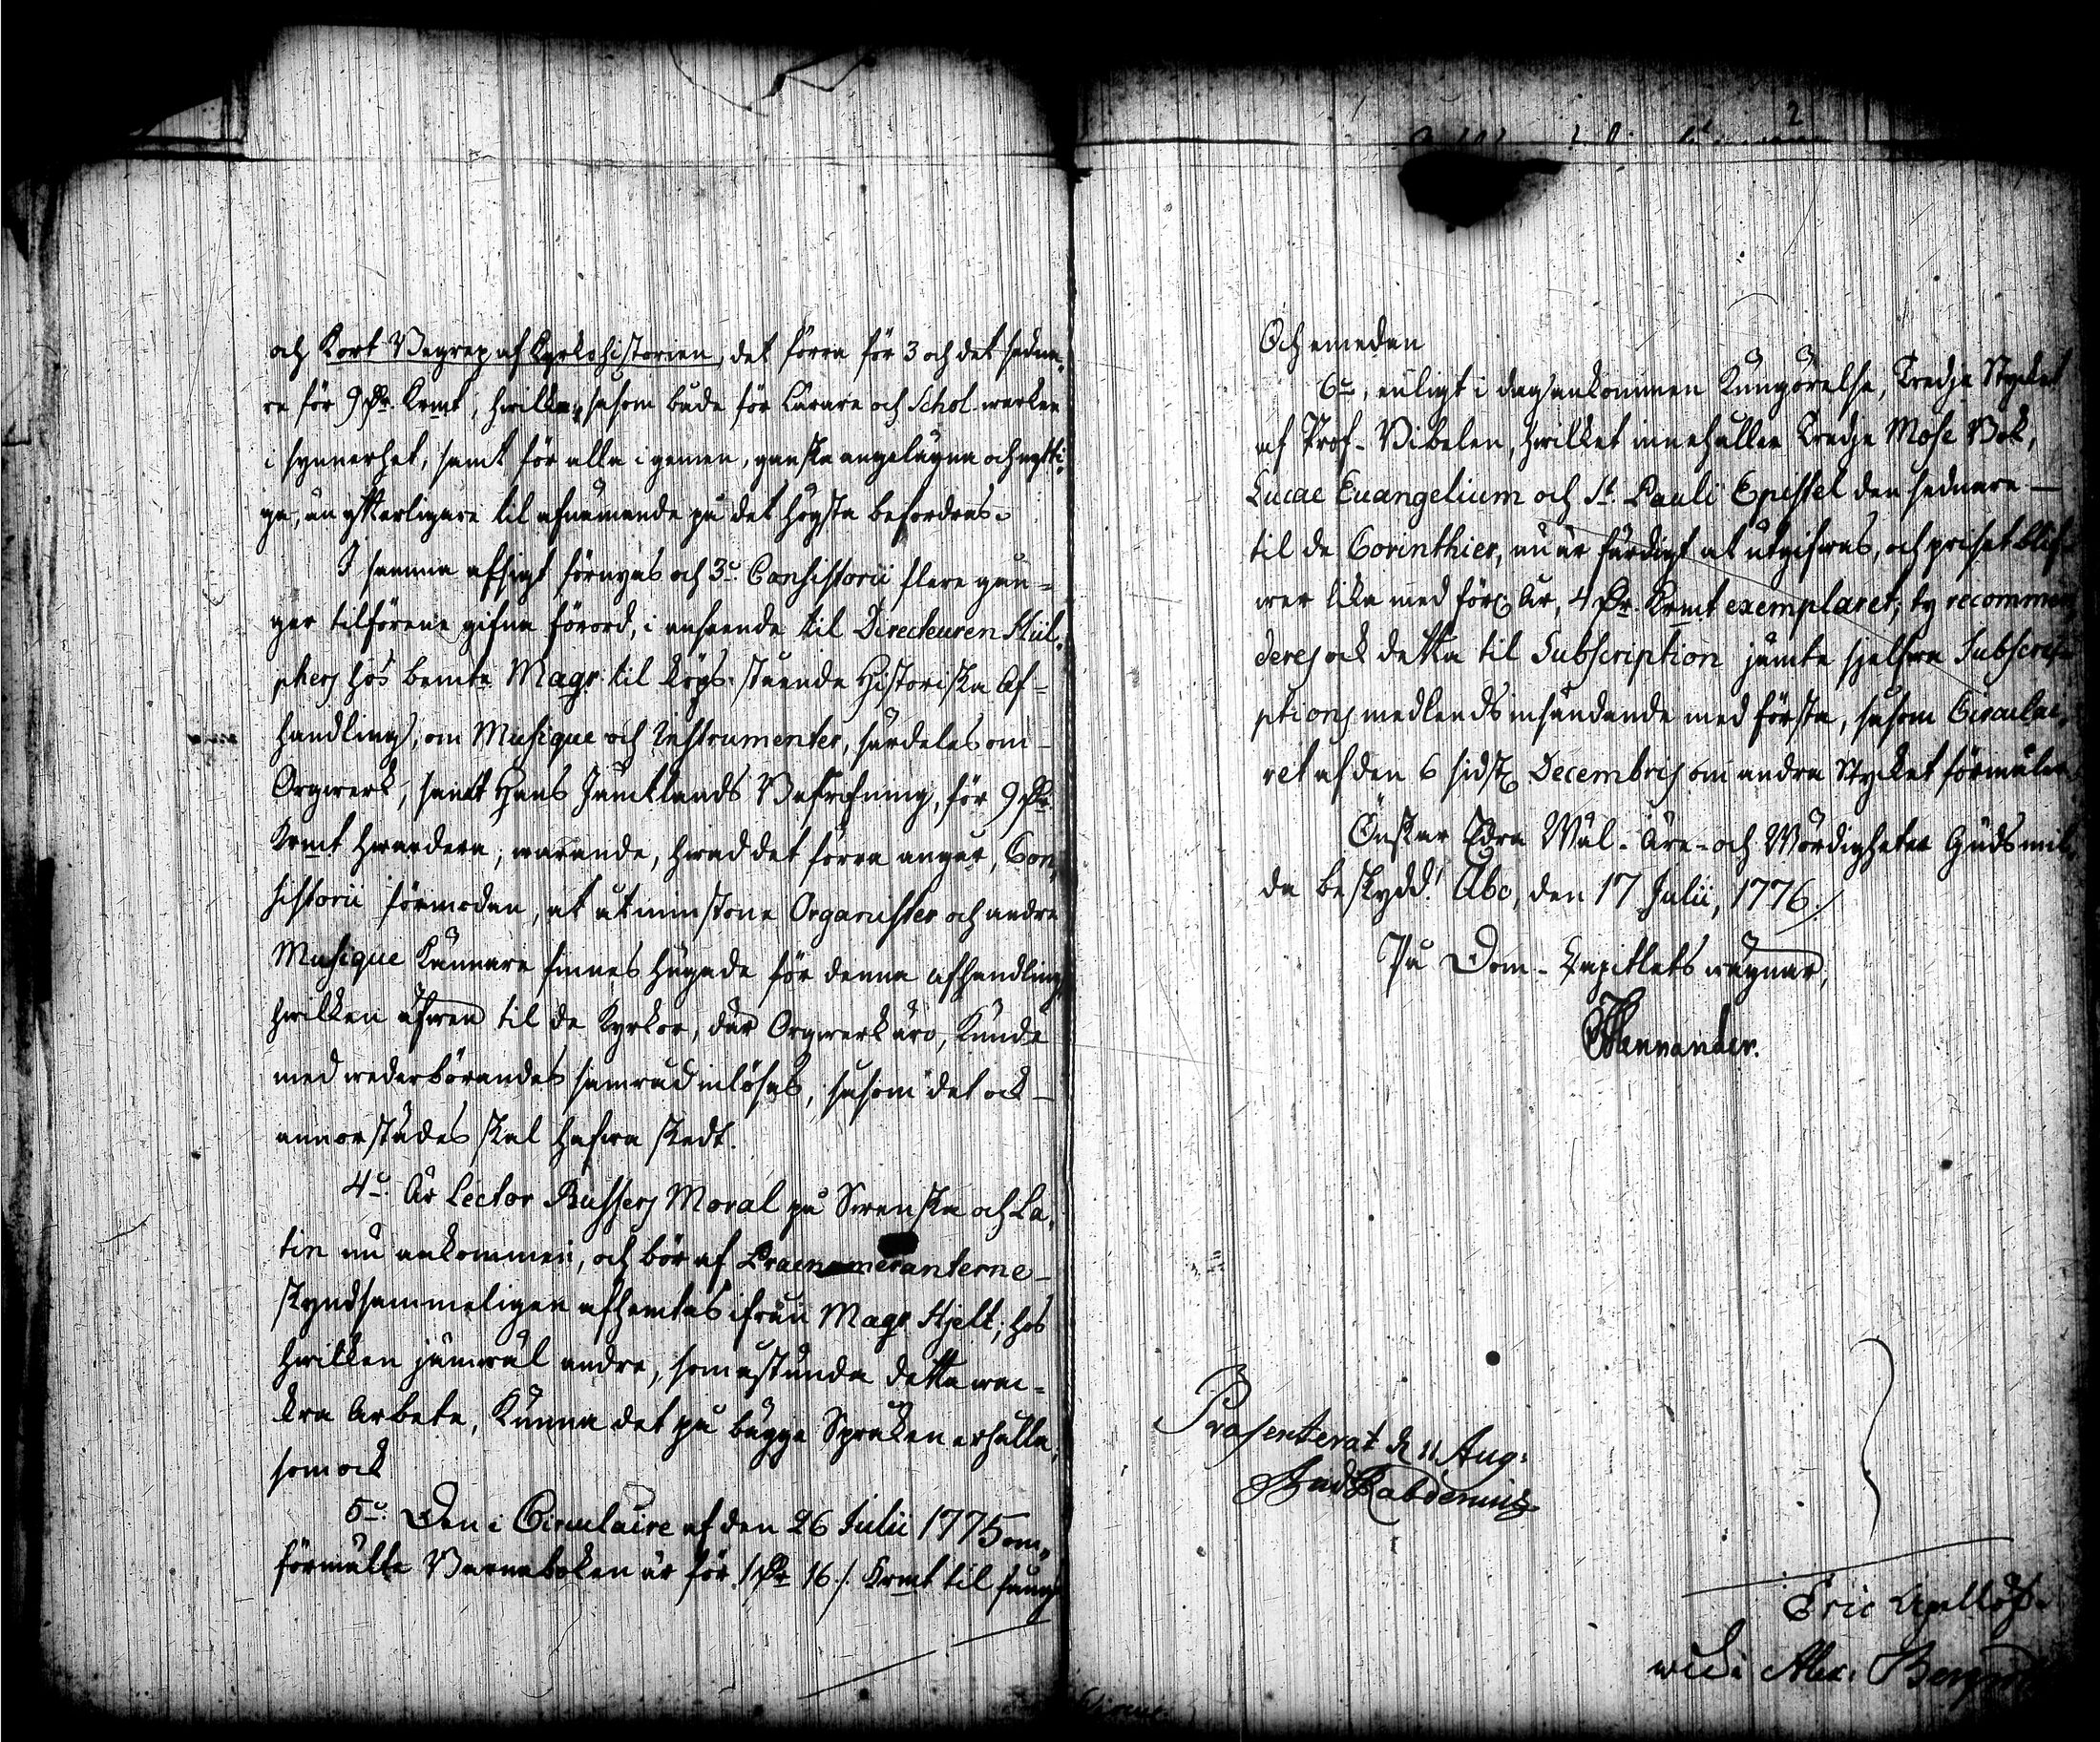 och Kort Begrep af Kyrkohistorien, det förra för 3 och det sedna,
re för 9 Plr. Krmt, hwilka, såsom både för Lärare och Schol. wärken
i synnerhet, samt för alla i gemen, ganska angelägna och nytti,
ga, än ytterligare til afnämande på det högsta befordras.
I samma afsigt förnyas och 3:o Consistorii flere gån=
ger tilförene gifna förord, i anseende til Directeuren Hül,
phers hos bemte Magr. til köps stående Historiska Af=
handling, om Musique och Instrumenter, särdeles om
Orgwerk, samt Hans Jämtlands Beskrifning, för 9 Plr.
Krmt hwardera; warande, hwad det förra angår, Con,
sistorii förmodan, at åtminstone Organister och andre
Musique Kännare finnes hugade för denna afhandling,
hwilken äfwen til de Kyrkor, där Orgwerk äro, kunde
med wederbörandes samråd inlösas, såsom det ock
annorstädes skal hafwa skedt.
4:o Är Lector Bussers Moral på Swenska och La,
tin nu ankommen, och bör af Praenumeranterne
skyndsammeligen afhemtas ifrån Magr. Hjelt; hos
hwilken jämwäl andre, som åstunda detta wac=
kra Arbete, kunna det på bägge Språken erhålla,
som ock
5:o Den i Circulaire af den 26 Julii 1775 om,
förmälte Barnaboken är för 1 Plr 16 /. Krmt til fångs
2
Och emedan
6:o, enligt i dag ankommen Kungörelse, Tredje Stycket
af Prof-Bibelen, hwilket innehåller Tredje Mose Bok,
Lucae Euangelium och St. Pauli Epistel den sednare
til de Corinthier, nu är färdigt at utgifwas, och priset blif
wer lika med förra År, 4 Plr. Krmt exemplaret; ty recommen
deres ock detta til Subscription jämte sjelfwa Subscri
ptions medlends insändande med första, såsom Circulai,
ret af den 6 sidstl. Decembris om andra Stycket förmäler.
Önskar Edra Wäl-Äre- och Wördigheter Guds mil,
da beskydd! Åbo, den 17 Julii, 1776.
På Dom-Capitlets wägnar,
CF Mennander.
Præsenterat d. 11 Aug:
And
Eric
widi Alex: